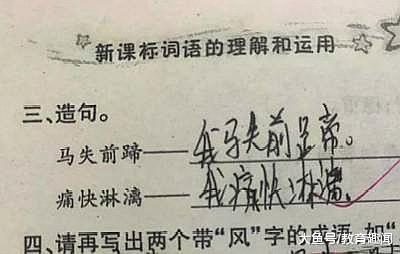 新课标词语的理解和运用
三、造句。
马失前蹄——我马失前足帝。
痛快淋漓——我痛快淋漓
四、请再写出两个带“风”字的成语,如“
大鱼号/教育趣闻